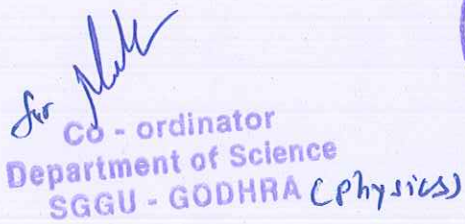 for
Co - ordinator
Department of Science
SGGU - GODHRA (Physics)